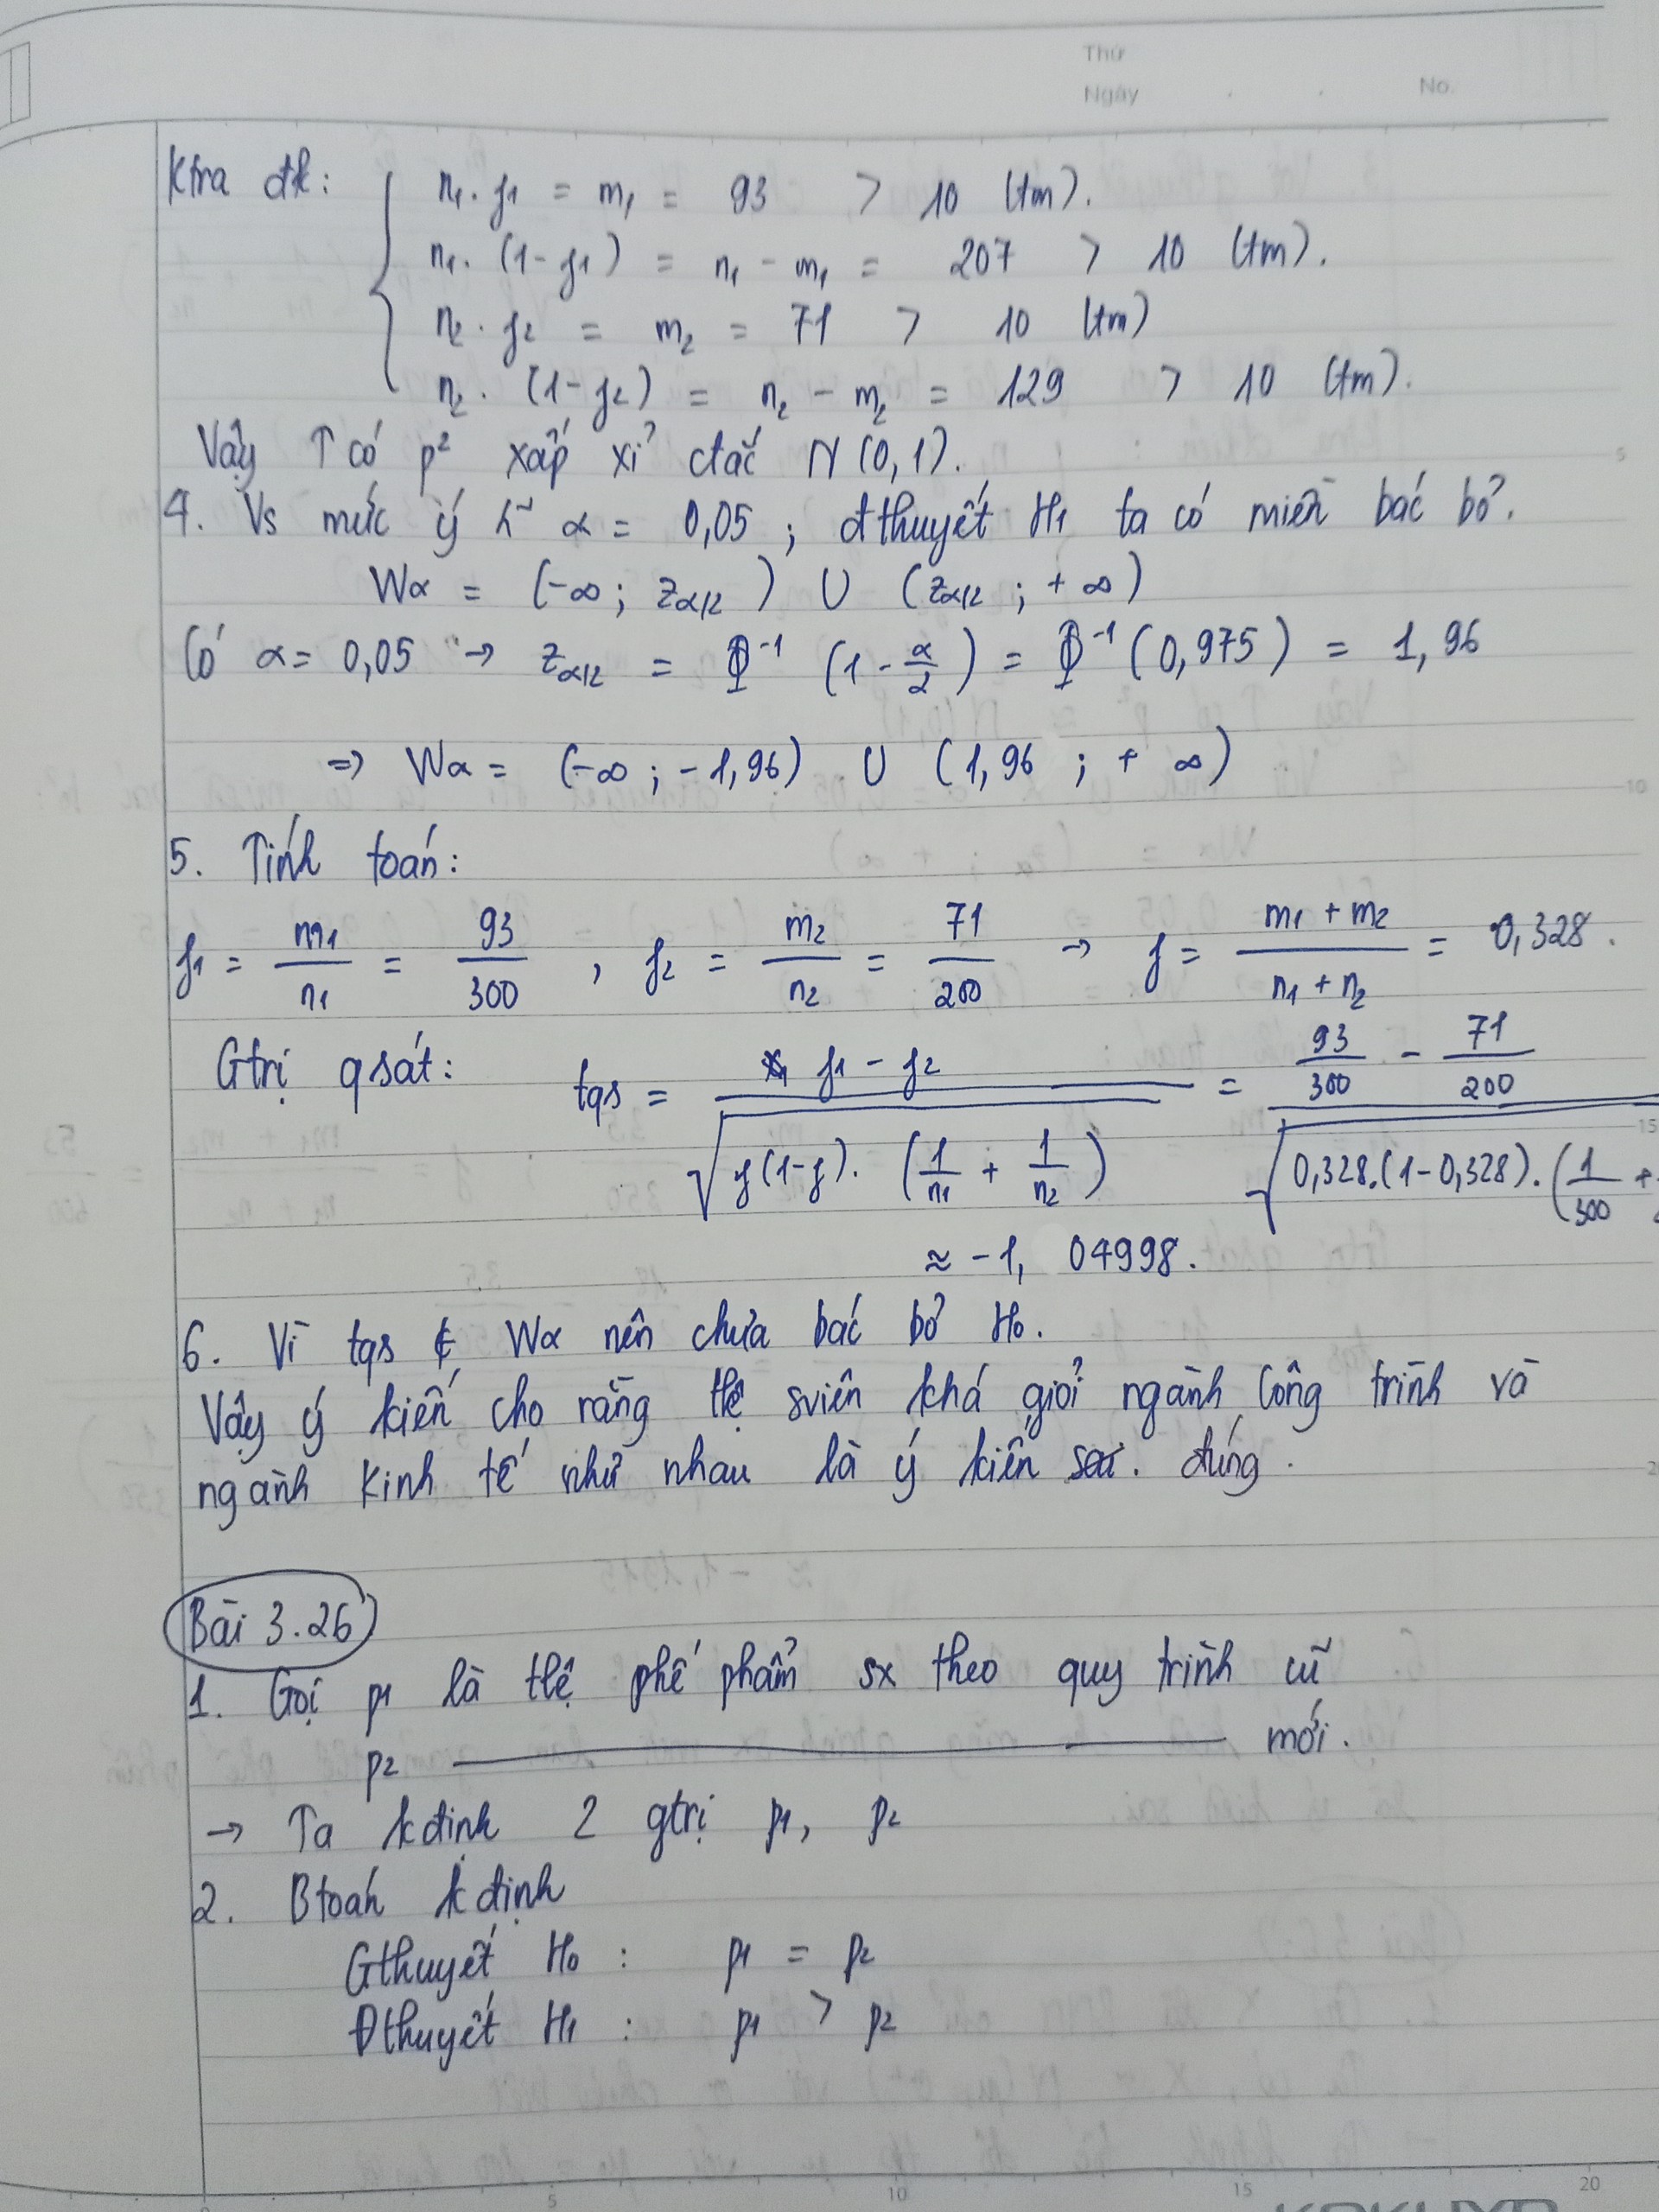 Thứ
Ngày . . No.
Ktra đk: n₁. f₁ = m₁ = 93 > 10 (tm).
n₁. (1-f₁) = n₁ - m₁ = 207 > 10 (tm).
n₂. f₂ = m₂ = 71 > 10 (tm)
n₂. (1-f₂) = n₂ - m₂ = 129 > 10 (tm).
Vậy T có p² xấp xỉ ctắc N(0,1).
4. Vs mức ý α = 0,05 ; đthuyết H₁ ta có miền bác bỏ.
Wα = (-∞; zα/2) ∪ (zα/2 ; +∞)
Có α = 0,05 → zα/2 = Φ⁻¹ (1 - α/2) = Φ⁻¹(0,975) = 1,96
⇒ Wα = (-∞ ; -1,96) ∪ (1,96 ; +∞)
5. Tính toán:
f₁ = m₁/n₁ = 93/300 , f₂ = m₂/n₂ = 71/200 → f = (m₁ + m₂)/(n₁ + n₂) = 0,328.
Gtrị qsát: tqs = (f₁ - f₂)/√(f(1-f). (1/n₁ + 1/n₂)) = (93/300 - 71/200)/√(0,328.(1-0,328).(1/300 +
≈ -1,04998.
6. Vì tqs ∉ Wα nên chưa bác bỏ H₀.
Vậy ý kiến cho rằng tlệ sviên khá giỏi ngành Công trình và
ngành Kinh tế như nhau là ý kiến đúng.
Bài 3.26
1. Gọi p₁ là tlệ phế phẩm sx theo quy trình cũ
p₂ ——— mới.
→ Ta kđịnh 2 gtrị p₁, p₂
2. Btoán kđịnh
Gthuyết H₀ : p₁ = p₂
Đthuyết H₁ : p₁ > p₂